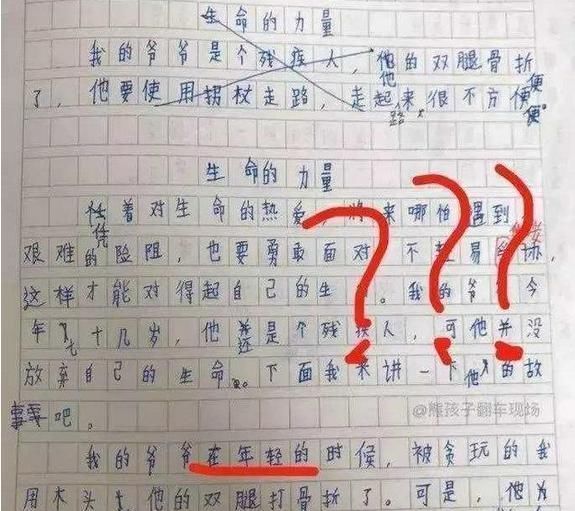 生命的力量
我的爷爷是个残疾人，他的双腿骨折
他
了，他要使用拐杖走路，走起来很不方便。
路
便
便
生命的力量
任着对生命的热爱，将来哪怕遇到
凭
艰难的险阻，也要勇敢面对，不轻易妥协，
这样才能对得起自己的生命。我的爷爷今
年七十几岁，他还是个残疾人，可他并没
放弃自己的生命。下面我来讲一下他的故
事吧。
@熊孩子翻车现场
我的爷爷在年轻的时候，被贪玩的我
用木头把他的双腿打骨折了。可是，他为